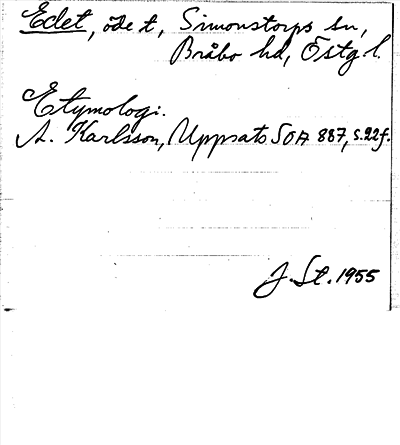 Edet, öde t, Simonstorps sn,
Bråbo hd, Östg l.
Etymologi.
A. Karlsson, Uppsats SOA 887, s. 22 f.
J. St. 1955